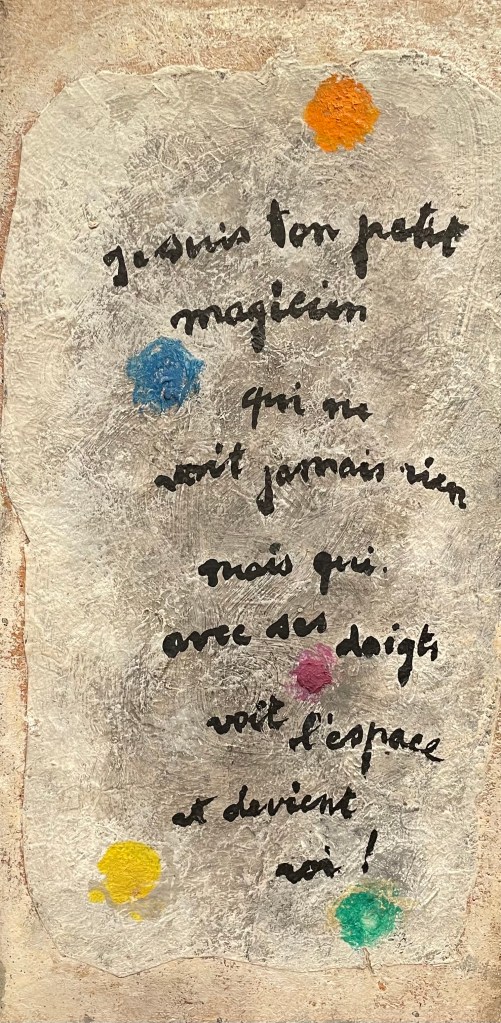 je suis ton petit
magicien
qui ne
voit jamais rien
mais qui
avec ses doigts
voit l'espace
et devient
roi !